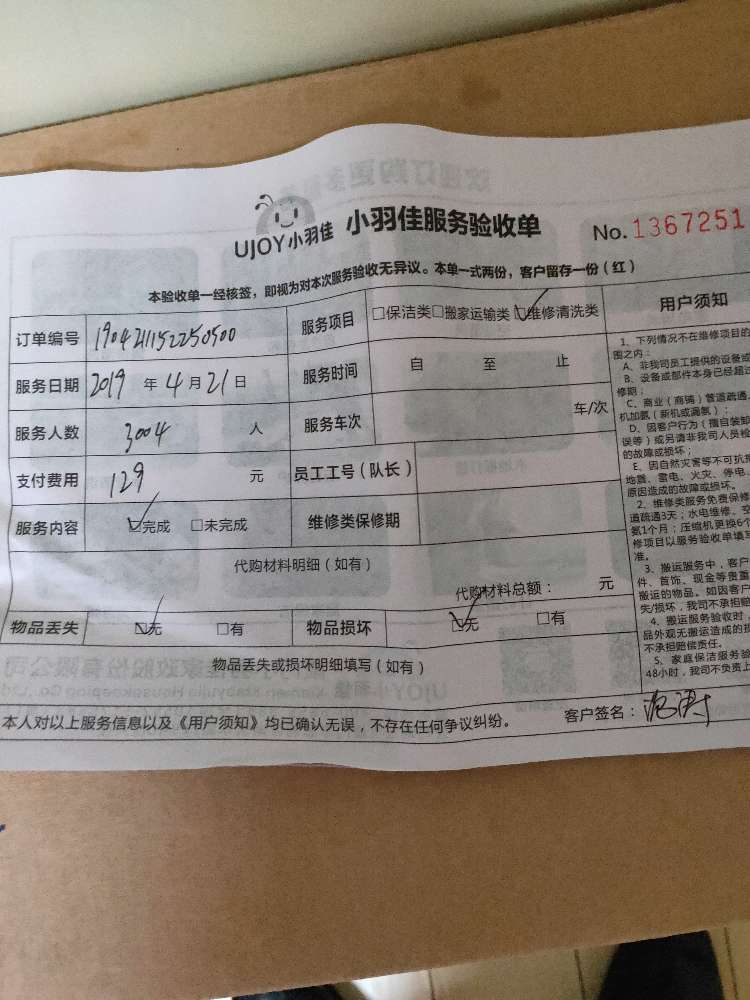 UJOY小羽佳 小羽佳服务验收单 No.1367251
本验收单一经核签，即视为对本次服务验收无异议。本单一式两份，客户留存一份（红）
订单编号 1904211152250500 服务项目 □保洁类□搬家运输类☑维修清洗类 用户须知
服务日期 2019 年 4 月 21 日 服务时间 自 至 止
服务人数 3004 人 服务车次 车/次
支付费用 129 元 员工工号（队长）
服务内容 ☑完成 □未完成 维修类保修期
代购材料明细（如有）
代购材料总额： 元
物品丢失 ☑无 □有 物品损坏 ☑无 □有
物品丢失或损坏明细填写（如有）
本人对以上服务信息以及《用户须知》均已确认无误，不存在任何争议纠纷。 客户签名：
1、下列情况不在维修项目的
围之内：
A、非我司员工提供的设备或
B、设备或部件本身已经超过
修期；
C、商业（商铺）管道疏通、
机加氨（新机或漏氨）；
D、因客户行为（擅自装卸
误等）或另请非我司人员检
的故障或损坏；
E、因自然灾害等不可抗
地震、雷电、火灾、停电、
原因造成的故障或损坏。
2、维修类服务免费保修
道疏通3天；水电维修、空
氨1个月；压缩机更换6个
修项目以服务验收单填写
准。
3、搬运服务中，客户
件、首饰、现金等贵重
搬运的物品。如因客户
失/损坏，我司不承担赔
4、搬运服务验收时，
品外观无搬运造成的损
不承担赔偿责任。
5、家庭保洁服务验
48小时，我司不负责上